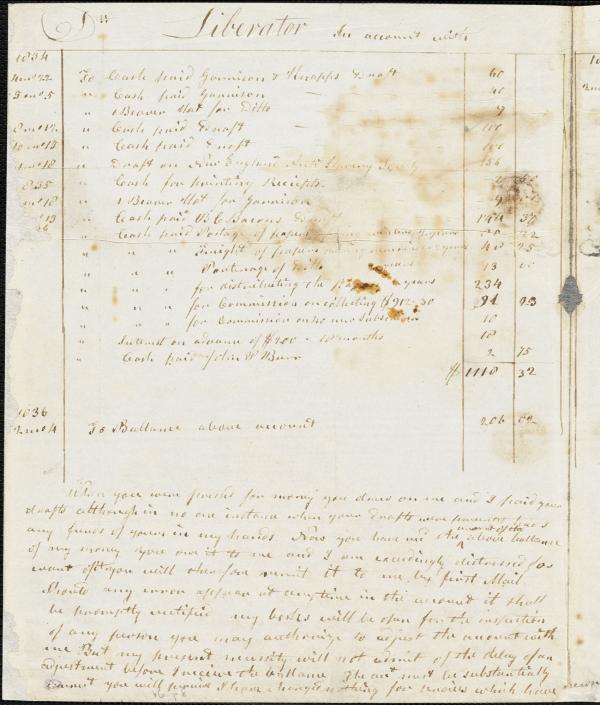 Dr Liberator In account with
1834
4mo 22 To Cash paid Garrison & Knapps Draft 60
5mo 5 " Cash paid Garrison 40
" 1 Beaver Hat for Ditto 9
8mo 12 " Cash paid Draft 100
10mo 13 " Cash paid Draft 100
18 " Draft on New England Anti Slavery Society
1835 " Cash for printing Receipts
mo 18 " 1 Beaver Hat for Garrison 9
13 " Cash paid B C Bacons Draft 37
26 " Cash paid Postage of papers 22
" " " Freight of papers 40 25
" " " Porterage of Ditto years 13
" " " for distributing the years 234
" " " for Commission on collecting $912.30 91 23
" " " for Commission on new Subscribers 10
" Interest on advance of $200 18 months 18
" Cash paid John P Burr 2 75
$ 1118 32
1836
2mo 4 To Ballance above account 206 02
When you were pressed for money you drew on me and I paid your
drafts although in no one instance when your drafts were presented had I
any funds of yours in my hands Now you have had the amount of the above ballance
of my money you owe it to me and I am exceedingly distressed for
want of it you will therefore remit it to me by first Mail
Should any error appear at anytime in the account it shall
be promptly rectified my books will be open for the inspection
of any person you may authorize to adjust the account with
me But my present necessity will not admit of the delay of an
adjustment before I receive the ballance The act must be substantially
correct you will perceive I have charged nothing for services which have